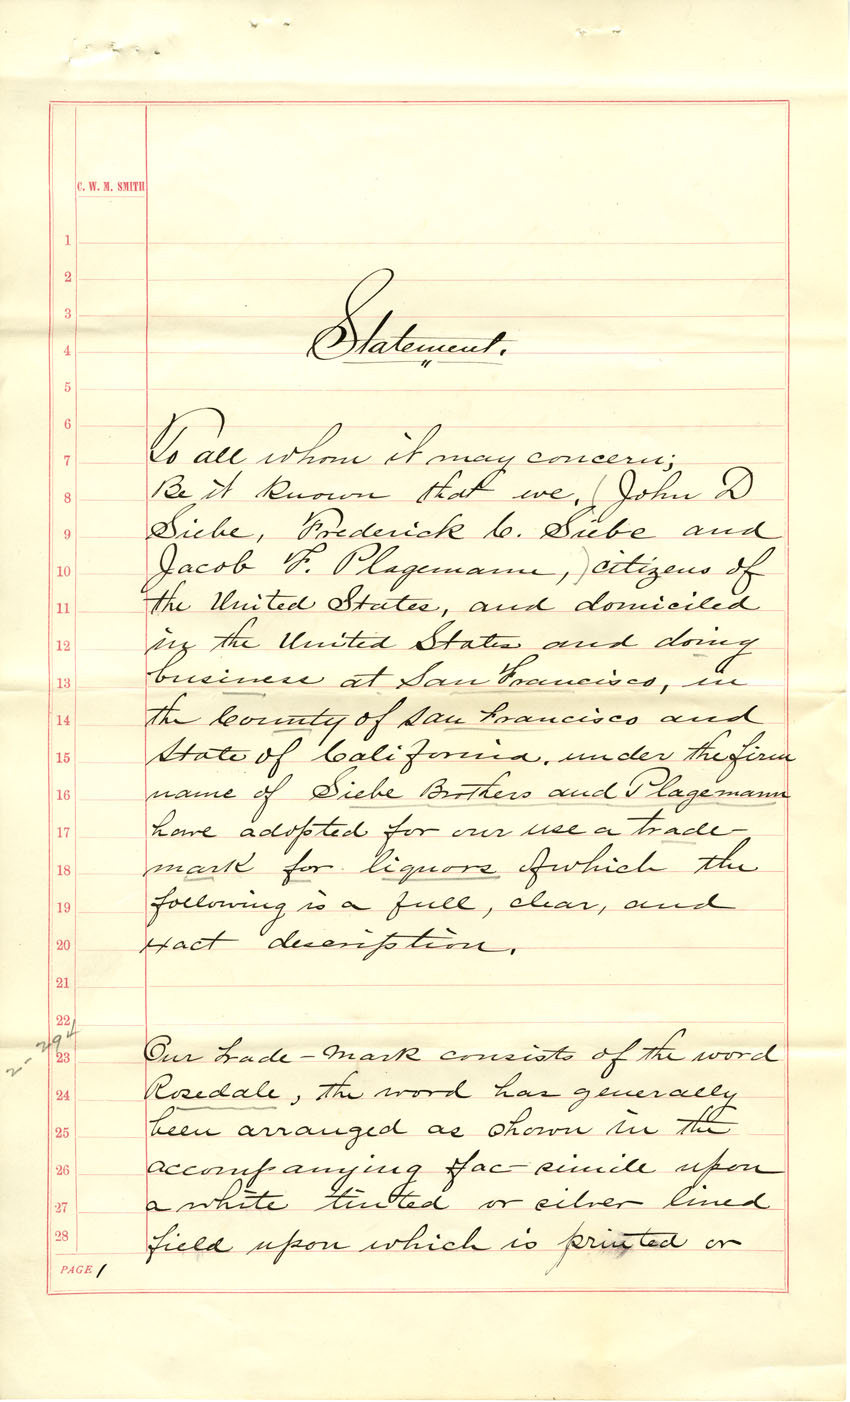 C. W. M. SMITH
1
2
3
4 Statement.
5
6
7 To all whom it may concern;
8 Be it known that we, (John D
9 Siebe, Frederick C. Siebe and
10 Jacob F. Plagemann,) citizens of
11 the United States, and domiciled
12 in the United States and doing
13 business at San Francisco, in
14 the County of San Francisco and
15 State of California, under the firm
16 name of Siebe Brothers and Plagemann
17 have adopted for our use a trade-
18 mark for liquors of which the
19 following is a full, clear, and
20 exact description.
21
22
2-294
23 Our trade-mark consists of the word
24 Rosedale, the word has generally
25 been arranged as shown in the
26 accompanying fac-simile upon
27 a white tinted or silver lined
28 field upon which is printed or
PAGE 1